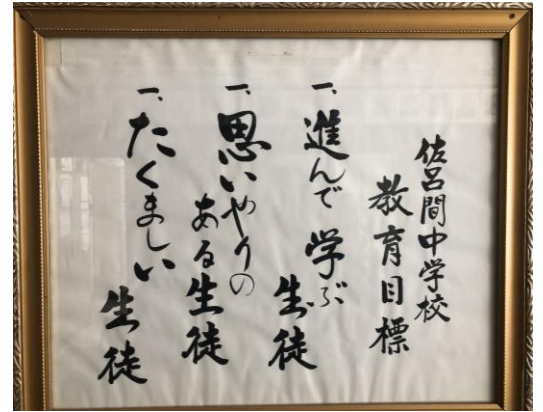 佐呂間中学校
教育目標
一、進んで学ぶ
生徒
一、思いやりの
ある生徒
一、たくましい
生徒